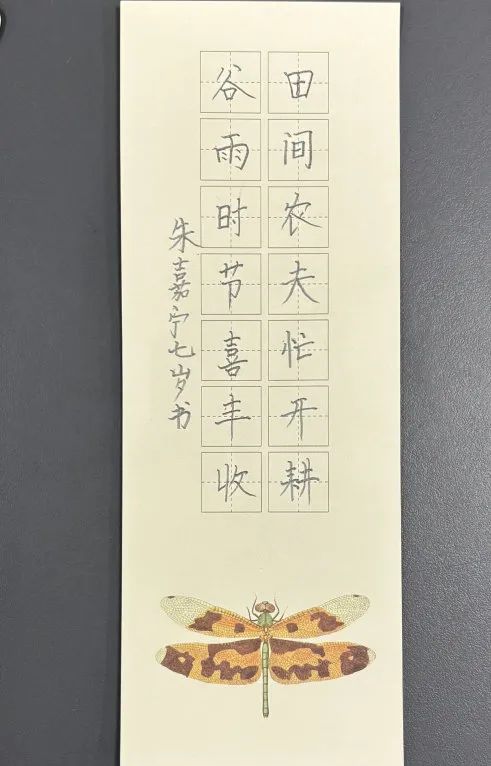 田间农夫忙开耕
谷雨时节喜丰收
朱嘉宁七岁书